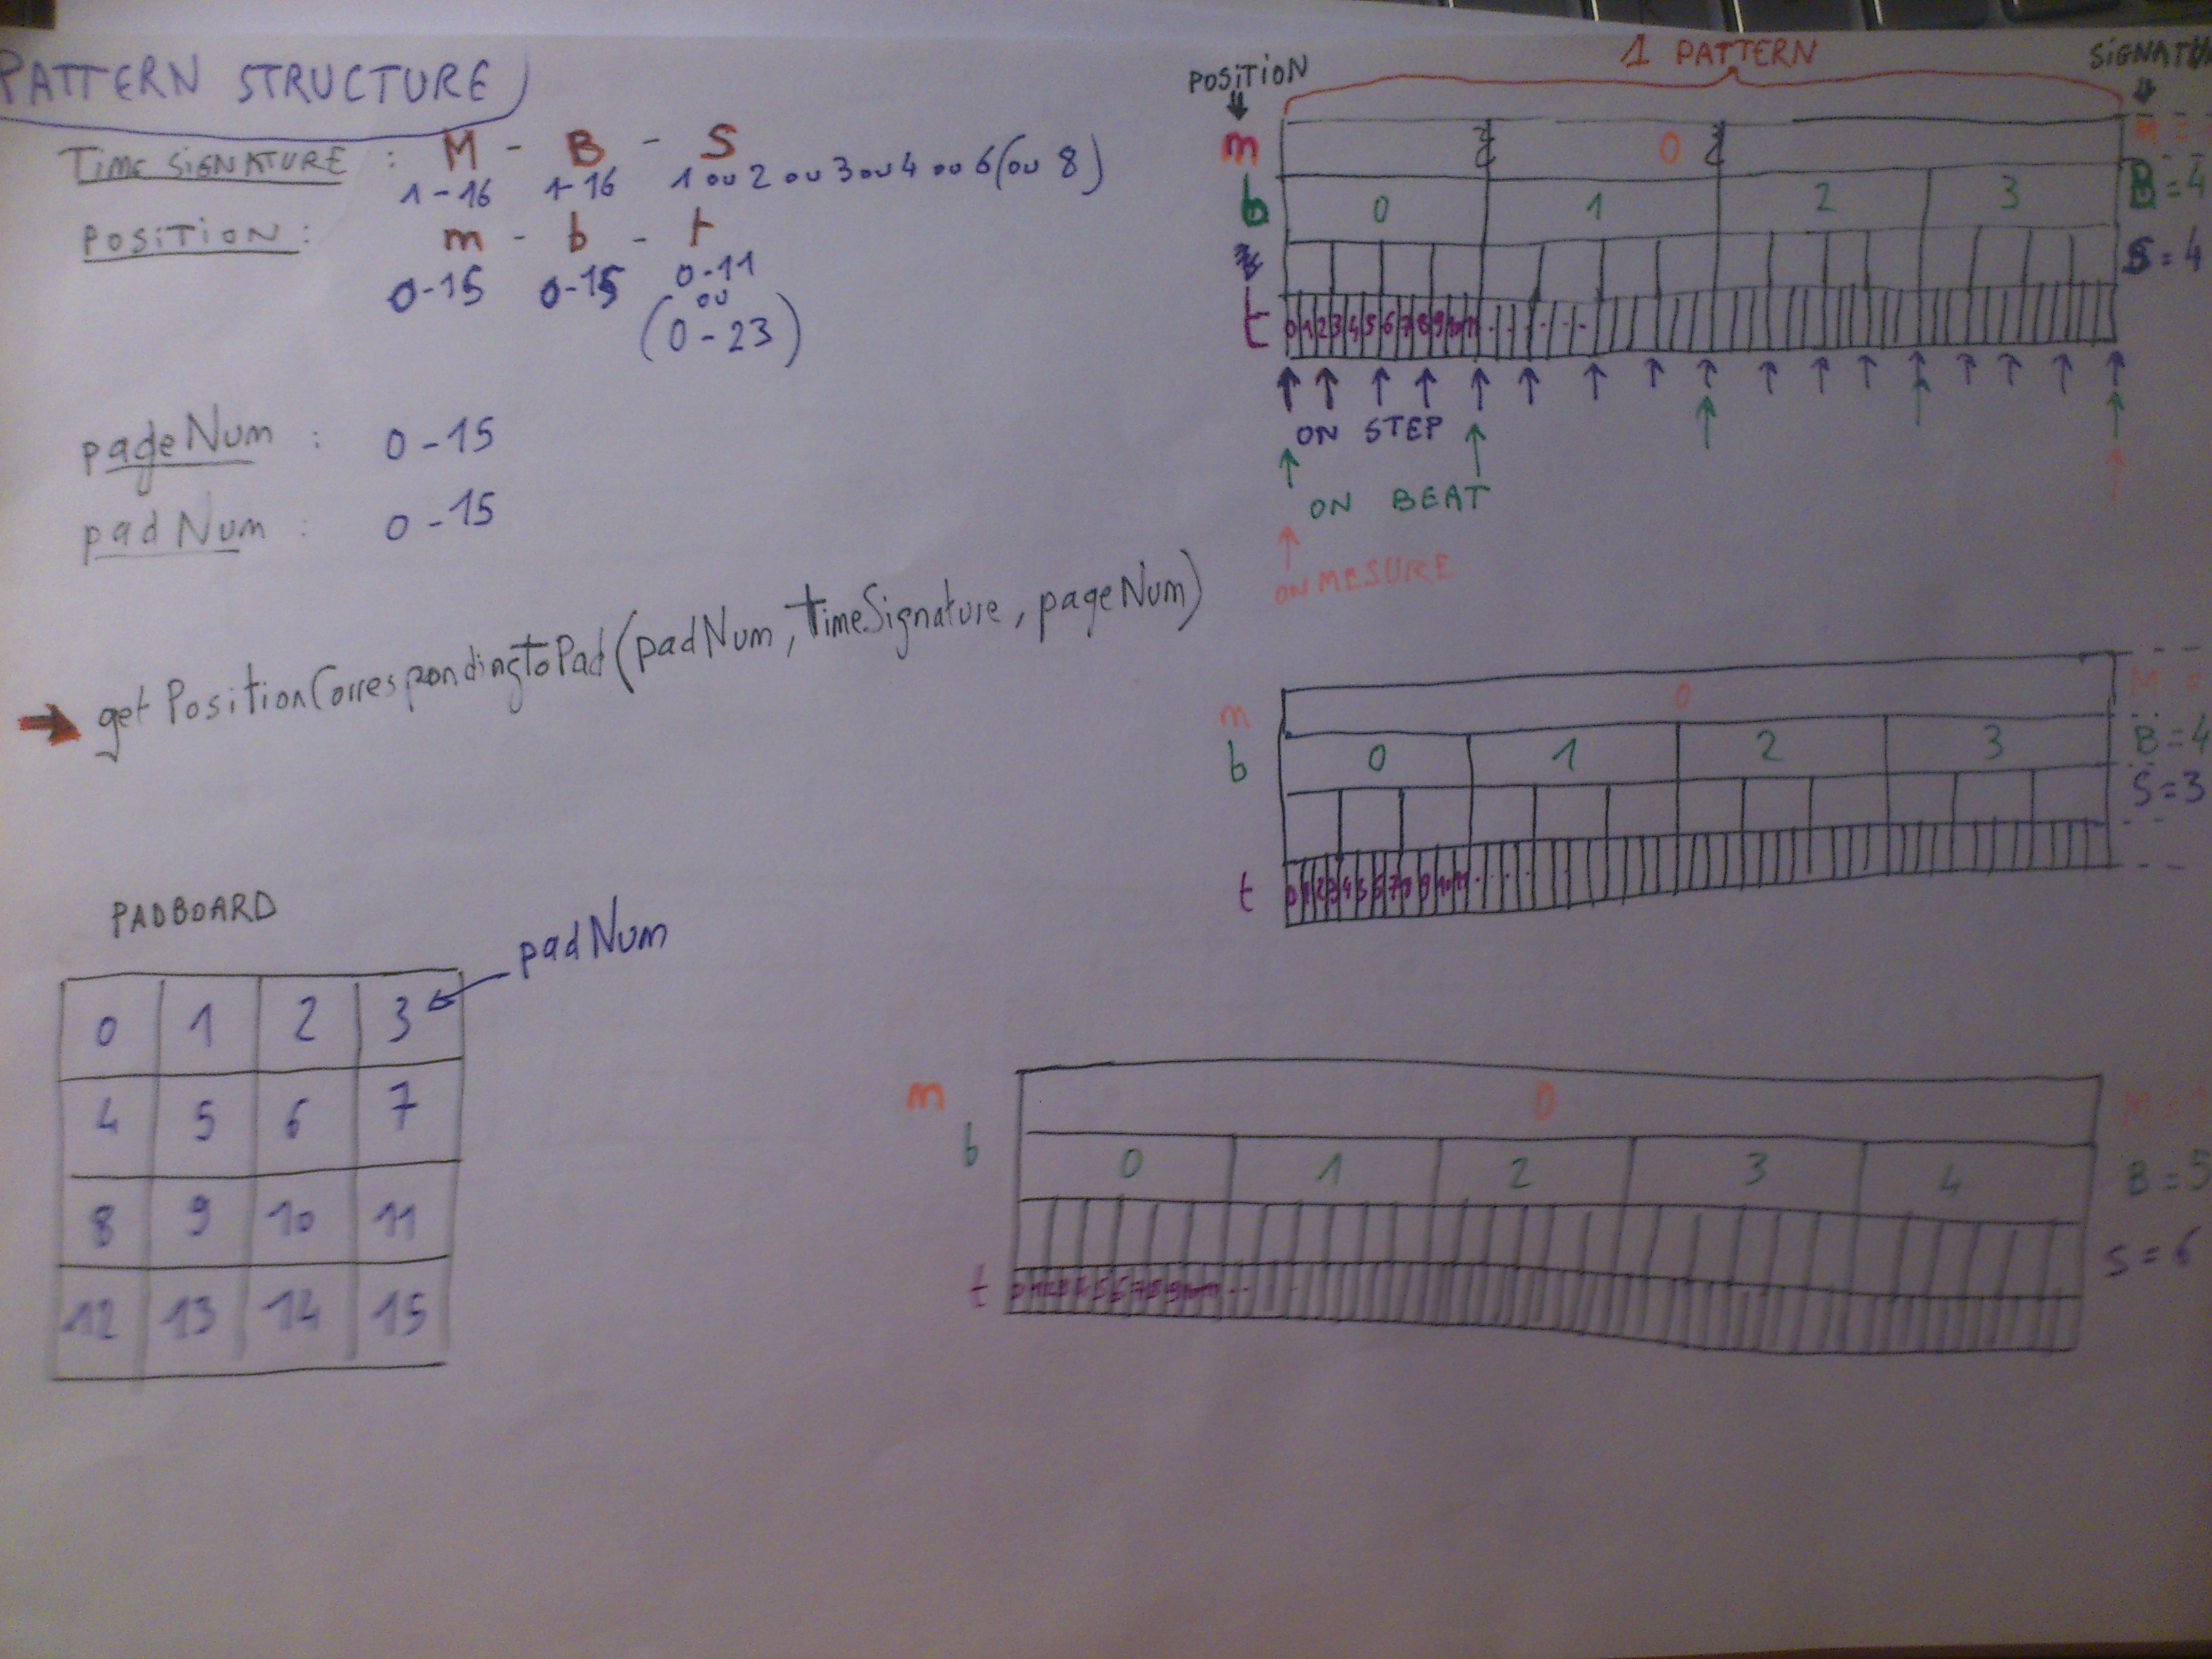 PATTERN STRUCTURE
TIME SIGNATURE : M - B - S
1-16 1-16 1 ou 2 ou 3 ou 4 ou 6 (ou 8)
POSITION : m - b - t
0-15 0-15 0-11
ou
(0-23)
pageNum : 0-15
padNum : 0-15
→ getPositionCorrespondingToPad(padNum, TimeSignature, pageNum)
PADBOARD
padNum
0 1 2 3
4 5 6 7
8 9 10 11
12 13 14 15
POSITION 1 PATTERN
m 0 M =
b 0 1 2 3 B = 4
S = 4
t 0 1 2 3 4 5 6 7 8 9 10 11 . . . . . .
ON STEP
ON BEAT
ON MESURE
m 0 M =
b 0 1 2 3 B = 4
S = 3
t 0 1 2 3 4 5 6 7 8 9 10 11 . . . . .
m 0 M =
b 0 1 2 3 4 B = 5
S = 6
t 0 1 2 3 4 5 6 7 8 9 10 11 . . .